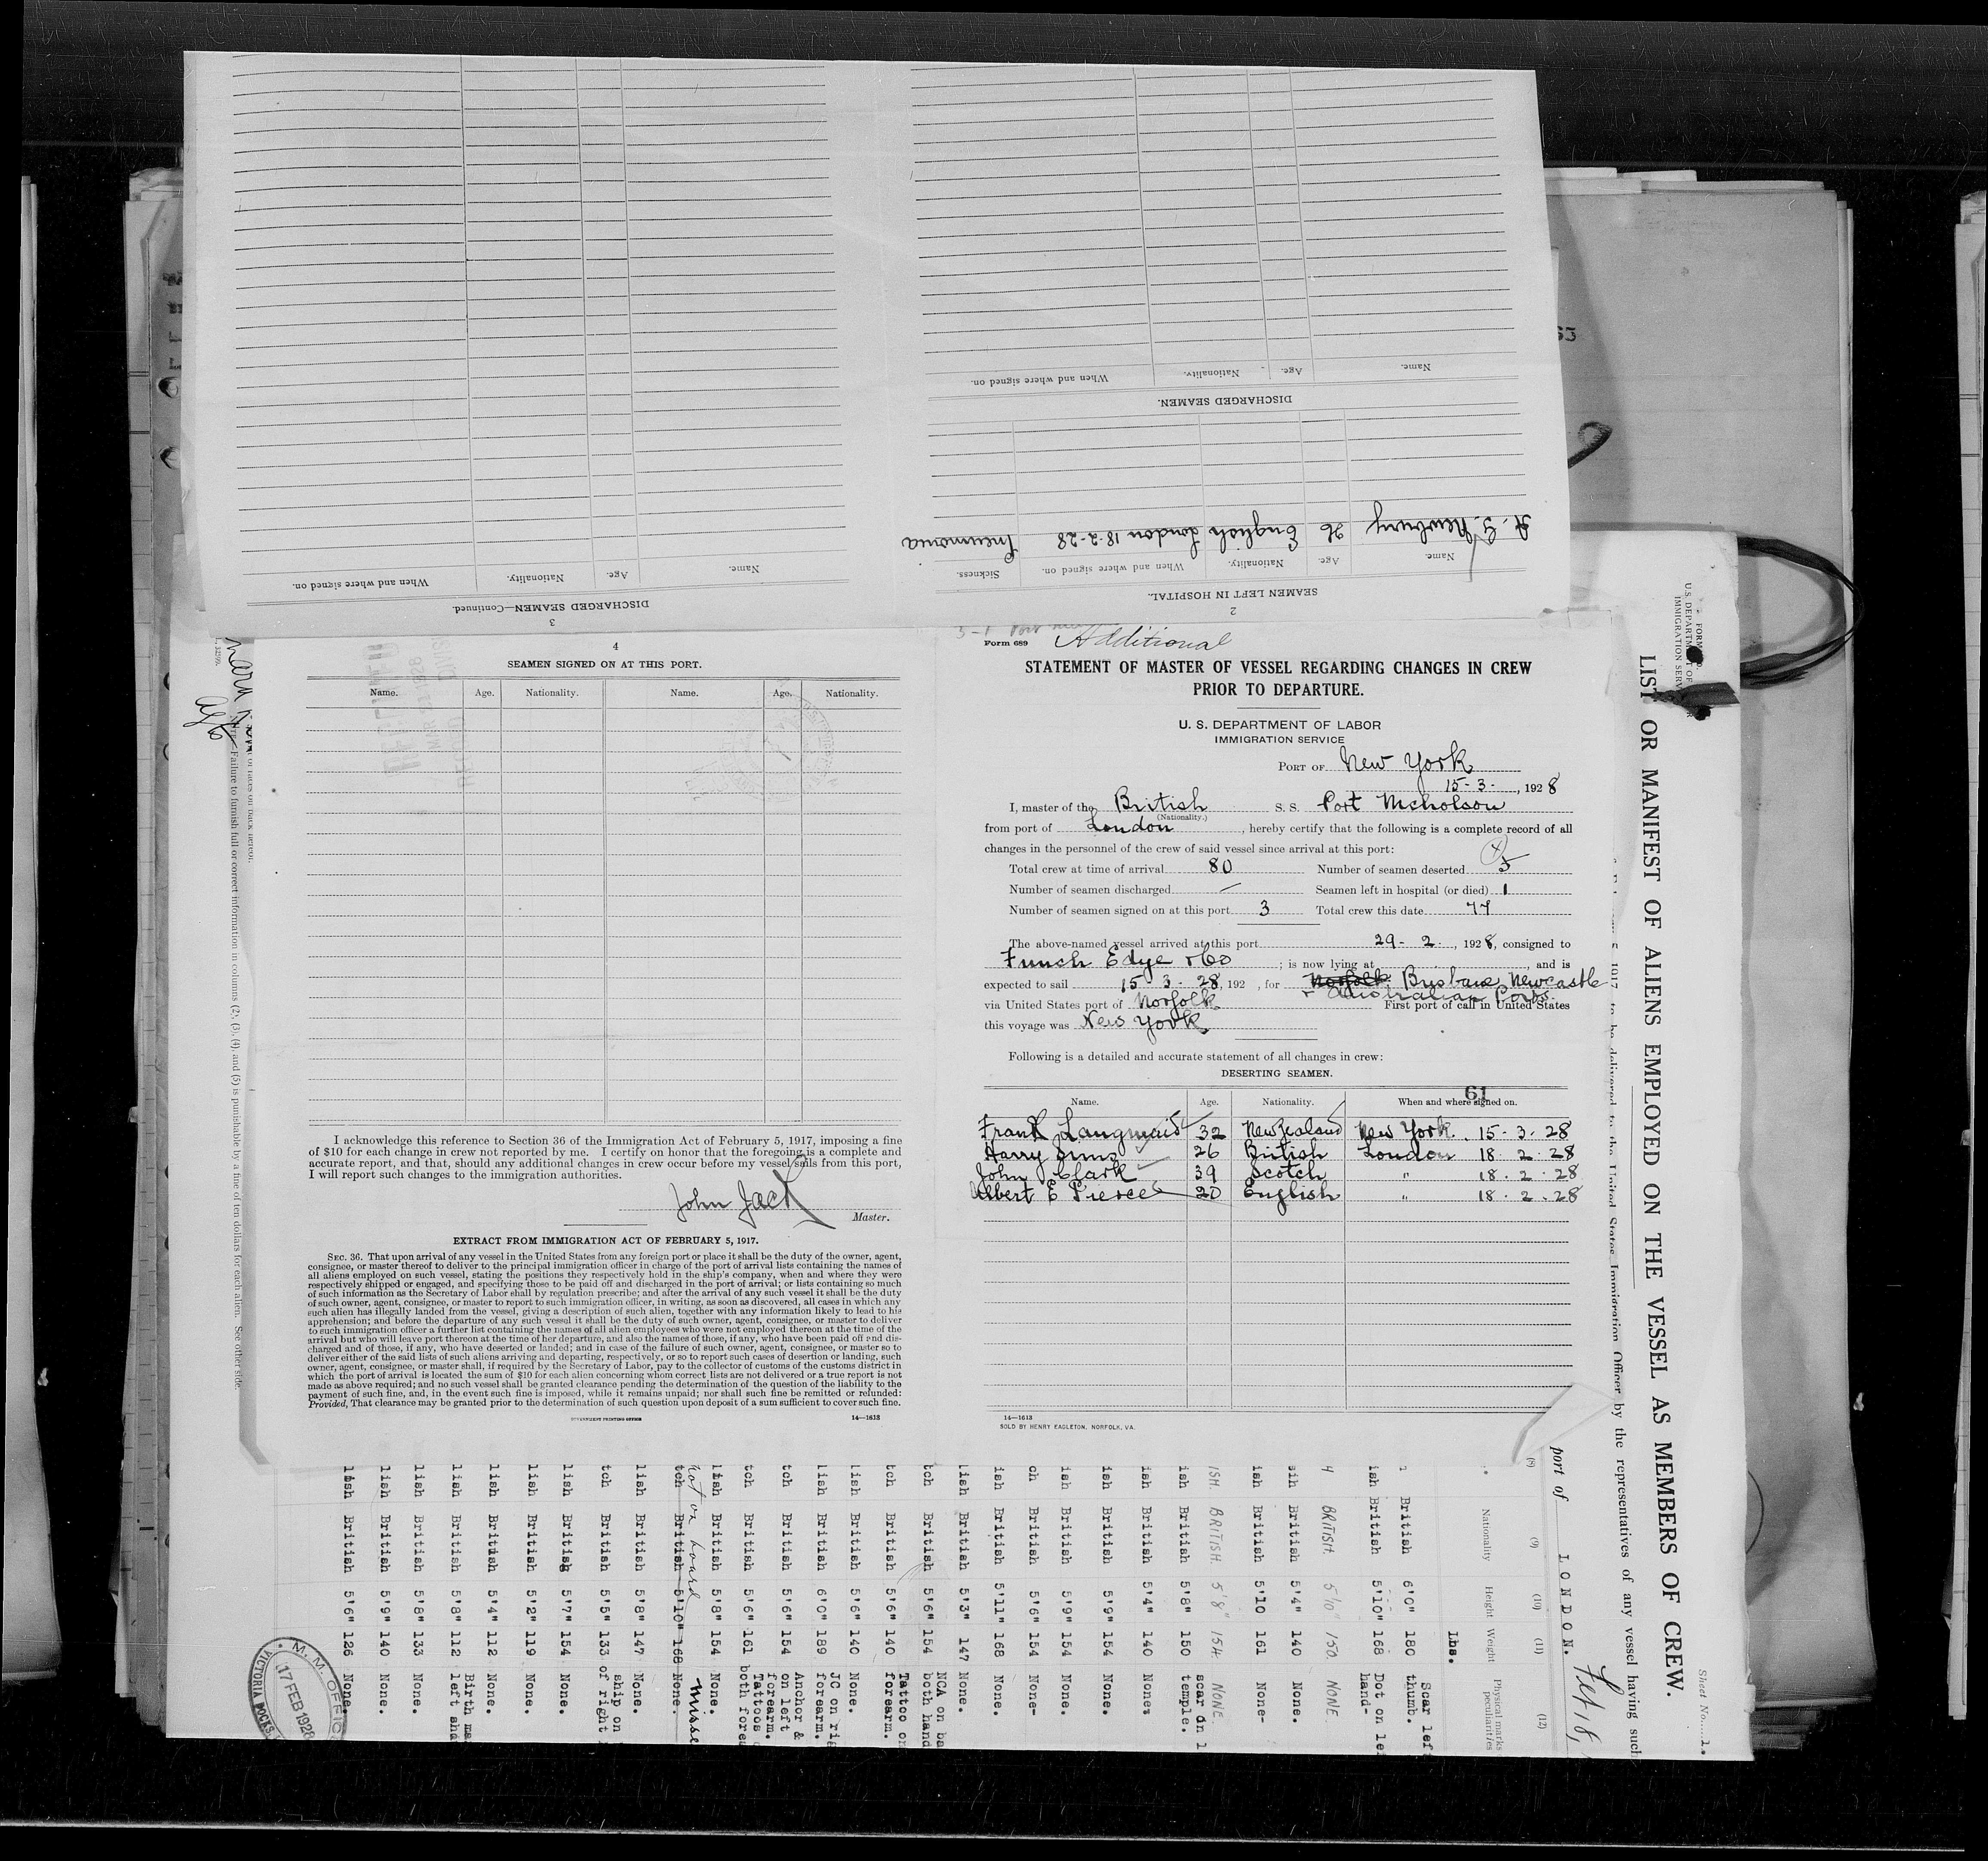 3
DISCHARGED SEAMEN—Continued.
Name. Age. Nationality. When and where signed on.
2
SEAMEN LEFT IN HOSPITAL.
Name. Age. Nationality. When and where signed on. Sickness.
Newbury 26 English London 18-2-28 Pneumonia
DISCHARGED SEAMEN.
Name. Age. Nationality. When and where signed on.
4
SEAMEN SIGNED ON AT THIS PORT.
Name. Age. Nationality. Name. Age. Nationality.
I acknowledge this reference to Section 36 of the Immigration Act of February 5, 1917, imposing a fine
of $10 for each change in crew not reported by me. I certify on honor that the foregoing is a complete and
accurate report, and that, should any additional changes in crew occur before my vessel sails from this port,
I will report such changes to the immigration authorities.
John Jack
Master.
EXTRACT FROM IMMIGRATION ACT OF FEBRUARY 5, 1917.
SEC. 36. That upon arrival of any vessel in the United States from any foreign port or place it shall be the duty of the owner, agent,
consignee, or master thereof to deliver to the principal immigration officer in charge of the port of arrival lists containing the names of
all aliens employed on such vessel, stating the positions they respectively hold in the ship's company, when and where they were
respectively shipped or engaged, and specifying those to be paid off and discharged in the port of arrival; or lists containing so much
of such information as the Secretary of Labor shall by regulation prescribe; and after the arrival of any such vessel it shall be the duty
of such owner, agent, consignee, or master to report to such immigration officer, in writing, as soon as discovered, all cases in which any
such alien has illegally landed from the vessel, giving a description of such alien, together with any information likely to lead to his
apprehension; and before the departure of any such vessel it shall be the duty of such owner, agent, consignee, or master to deliver
to such immigration officer a further list containing the names of all alien employees who were not employed thereon at the time of the
arrival but who will leave port thereon at the time of her departure, and also the names of those, if any, who have been paid off and dis-
charged and of those, if any, who have deserted or landed; and in case of the failure of such owner, agent, consignee, or master so to
deliver either of the said lists of such aliens arriving and departing, respectively, or so to report such cases of desertion or landing, such
owner, agent, consignee, or master shall, if required by the Secretary of Labor, pay to the collector of customs of the customs district in
which the port of arrival is located the sum of $10 for each alien concerning whom correct lists are not delivered or a true report is not
made as above required; and no such vessel shall be granted clearance pending the determination of the question of the liability to the
payment of such fine, and, in the event such fine is imposed, while it remains unpaid; nor shall such fine be remitted or refunded:
Provided, That clearance may be granted prior to the determination of such question upon deposit of a sum sufficient to cover such fine.
GOVERNMENT PRINTING OFFICE 14—1613
Form 689 Additional
STATEMENT OF MASTER OF VESSEL REGARDING CHANGES IN CREW
PRIOR TO DEPARTURE.
U. S. DEPARTMENT OF LABOR
IMMIGRATION SERVICE
PORT OF New York
15-3-, 1928
I, master of the British S. S. Port Nicholson
(Nationality.)
from port of London, hereby certify that the following is a complete record of all
changes in the personnel of the crew of said vessel since arrival at this port:
Total crew at time of arrival 80 Number of seamen deserted 5
Number of seamen discharged — Seamen left in hospital (or died) 1
Number of seamen signed on at this port 3 Total crew this date 77
The above-named vessel arrived at this port 29-2-, 1928, consigned to
Funch Edye & Co; is now lying at , and is
expected to sail 15-3-28, 192 , for Norfolk Brisbane, Newcastle
+ Australian Ports.
via United States port of Norfolk First port of call in United States
this voyage was New York
Following is a detailed and accurate statement of all changes in crew:
DESERTING SEAMEN.
61
Name. Age. Nationality. When and where signed on.
Frank Langmaid 32 New Zealand New York. 15-3-28
Harry Sims 26 British London 18-2-28
John Clark 39 Scotch " 18-2-28
Albert E Pierce 20 English " 18-2-28
14—1613
SOLD BY HENRY EAGLETON, NORFOLK, VA.
LIST OR MANIFEST OF ALIENS EMPLOYED ON THE VESSEL AS MEMBERS OF CREW.
Sheet No. 1.
U. S. DEPARTMENT OF
IMMIGRATION SERV
to be delivered to the United States Immigration Officer by the representatives of any vessel having such
port of LONDON. Feb 18,
(8) (9) (10) (11) (12)
Nationality Height Weight Physical marks peculiarities
Lbs.
British 6'0" 180 Scar left thumb.
ish British 5'10" 168 Dot on le hand-
BRITISH. 5'10" 150. NONE.
sih British 5'4" 140 None.
ish British 5'10 161 None-
ISH. BRITISH. 5'8" 154. NONE.
ish British 5'8" 150 scar on l temple.
ish British 5'4" 140 None:
ish British 5'9" 154 None.
ish British 5'9" 154 None.
ch British 5'6" 154 None-
ish British 5'11" 168 None.
lish British 5'3" 147 None.
tch British 5'6" 154 NCA on ba both hand
tch British 5'6" 140 Tattoo on forearm.
lish British 5'6" 140 None.
lish British 6'0" 189 JC on rig forearm.
tch British 5'6" 154 Anchor & on left forearm.
tch British 5'6" 161 Tattoos both fore
lish British 5'8" 154 None.
not on board
tch British 5'10" 168 None.
lish British 5'8" 147 None.
tch British 5'5" 133 ship on of right
lish British 5'7" 154 None.
lish British 5'2" 119 None.
lish British 5'4" 112 None.
lish British 5'8" 112 Birth ma left sho
lish British 5'8" 133 None.
lish British 5'9" 140 None.
lish British 5'6" 126 None.
NOTE—Failure to furnish full or correct information in columns (2), (3), (4), and (5) is punishable by a fine of ten dollars for each alien. See other side.
M. M. OFFIC
17 FEB 1928
VICTORIA DOCKS